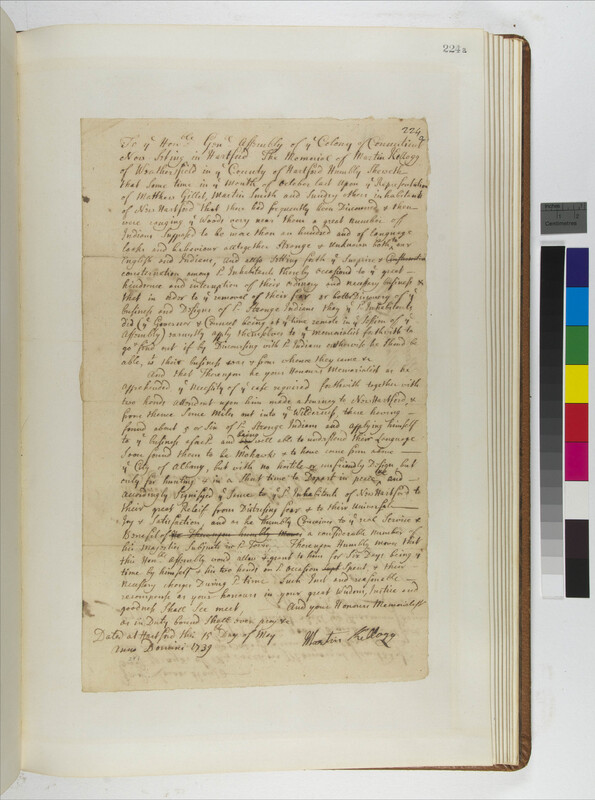 224a
224
a
To ye Honble Genll Assembly of ye Colony of Connecticut
Now Sitting in Hartford The Memorial of Martin Kellogg
of Weathersfield in ye County of Hartford Humbly Sheweth
that Some time in ye Month of October last Upon ye Representation
of Matthew Gillit, Martin Smith and Sundry others inhabitants
of New Hartford that there had frequently been Discovered & then
were ranging ye Woods very near them a great number of
Indians Supposed to be more than an hundred and of language
looks and behaviour alltogether Strange & Unknown both to our
English and Indians, and also Setting forth ye Surprise &
consternation among ye Inhabitants thereby occasiond to ye great
hindrance and interruption of their ordinary and necessary business &
that in order to ye removal of their fear or better Discovery of ye
business and Designs of sd Strange Indians they ye sd Inhabitants
did (ye Governor & Councel being at ye time remote in ye Session of ye
Assembly) earnestly apply themselves to ye Memorialist forthwith to
go & find out if by Discoursing with sd Indians otherwise he Should be
able, is their business was & from whence they came &c
And that Thereupon he your Honours Memorialist as he
apprehended ye Necessity of ye case required forthwith together with
two hands attendant upon him made a Journey to New Hartford, &
from thence Some Miles out into ye Wilderness, there having
found about 9 or Six of sd Strange Indians and applying himself
to ye business afsd and being well able to understand their Language
Soon found them to be Mohawks & to have come from above
ye City of Albany, but with no hostile or unfriendly Design but
only for hunting & in a Short time to Depart in peace, and
accordingly Signifyed ye Same to ye sd Inhabitants of New Hartford to
their great Relief from Distressing fear & to their Universal
Joy & Satisfaction, and as he humbly Conceives to ye real Service &
Benefit of a considerable number of
his Majesties Subjects in sd Town. Thereupon Humbly moves that
this Honl Assembly would allow & grant to him for Six Days being ye
time by himself & his two hands on sd occasion Spent, & their
necessary charges During sd time Such Just and reasonable
recompense as your honours in your great Wisdom, Justice and
goodness Shall See meet, And your Honours Memorialist
as in Duty bound Shall ever pray &c
Dated at Hartford this 15th Day of May
Anno Domini 1739
Martin Kellogg